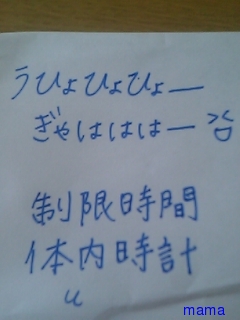 うひょひょひょー
ぎゃはははー
制限時間
体内時計
mama